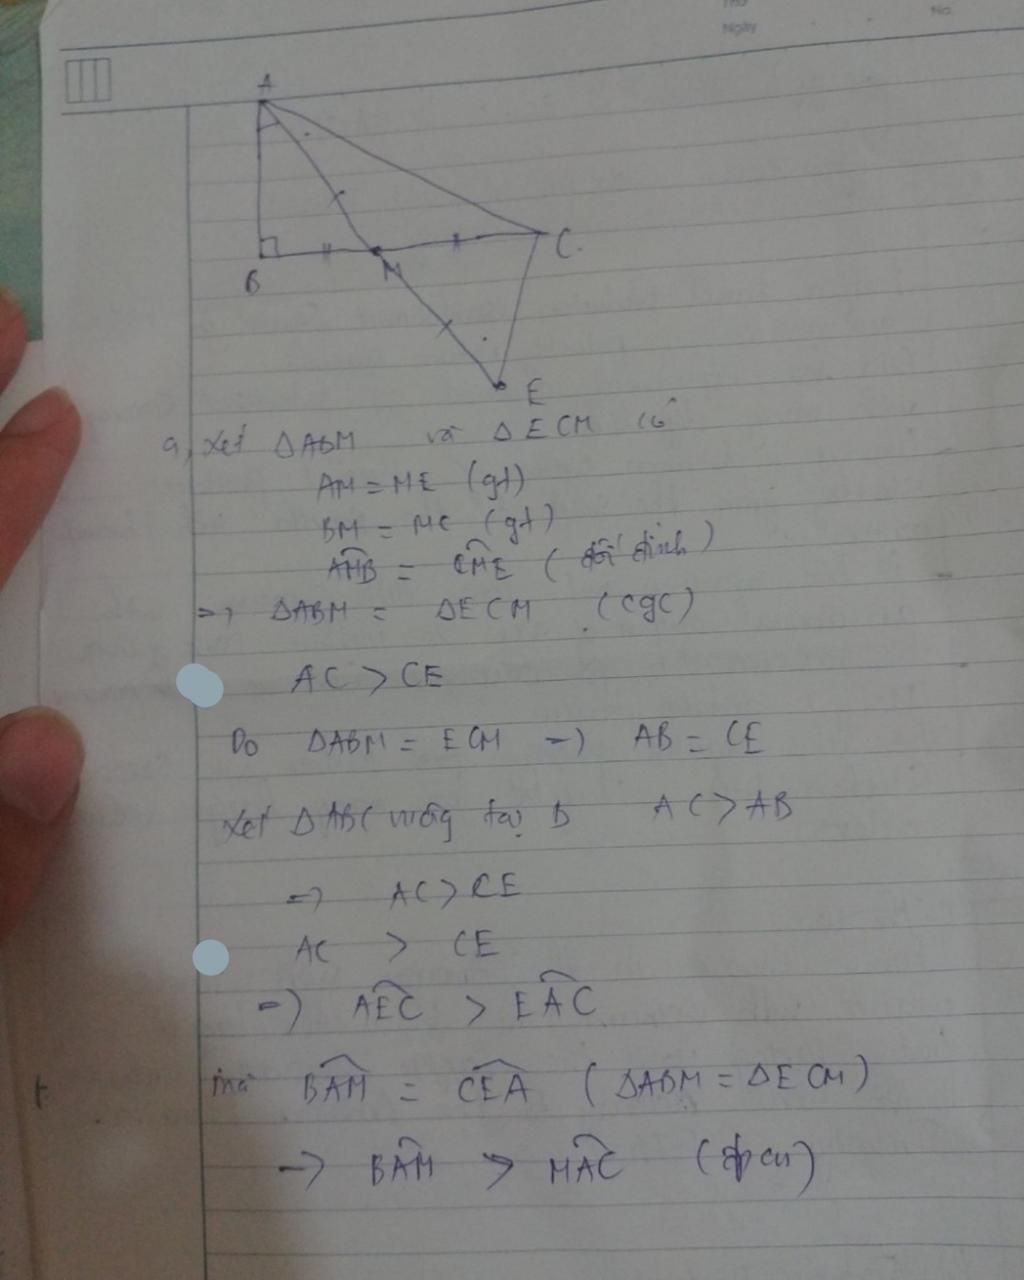 Thứ
Ngày
No.
A
B
M
C.
E
a, Xét ΔABM và ΔECM có
AM = ME (gt)
BM = MC (gt)
AMB = CME (đối đỉnh)
=> ΔABM = ΔECM (cgc)
AC > CE
Do ΔABM = ECM => AB = CE
Xét ΔABC vuông tại B AC > AB
=> AC > CE
AC > CE
=> AEC > EAC
mà BAM = CEA (ΔABM = ΔECM)
=> BAM > MAC (đpcm)